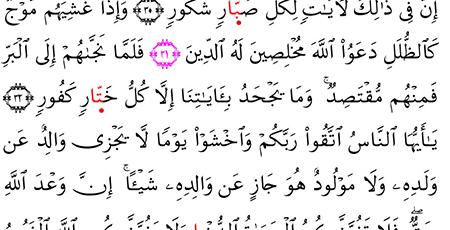 إِنَّ فِى ذَٰلِكَ لَأٓيَٰتٍ لِّكُلِّ صَبَّارٍ شَكُورٍ ﴿٣٥﴾ وَإِذَا غَشِيَهُم مَّوْجٌ
كَٱلظُّلَلِ دَعَوُا۟ ٱللَّهَ مُخْلِصِينَ لَهُ ٱلدِّينَ ﴿٣١﴾ فَلَمَّا نَجَّىٰهُمْ إِلَى ٱلْبَرِّ
فَمِنْهُم مُّقْتَصِدٌ ۚ وَمَا يَجْحَدُ بِـَٔايَٰتِنَآ إِلَّا كُلُّ خَتَّارٍ كَفُورٍ ﴿٣٢﴾
يَٰٓأَيُّهَا ٱلنَّاسُ ٱتَّقُوا۟ رَبَّكُمْ وَٱخْشَوْا۟ يَوْمًا لَّا يَجْزِى وَالِدٌ عَن
وَلَدِهِۦ وَلَا مَوْلُودٌ هُوَ جَازٍ عَن وَالِدِهِۦ شَيْـًٔا ۚ إِنَّ وَعْدَ ٱللَّهِ